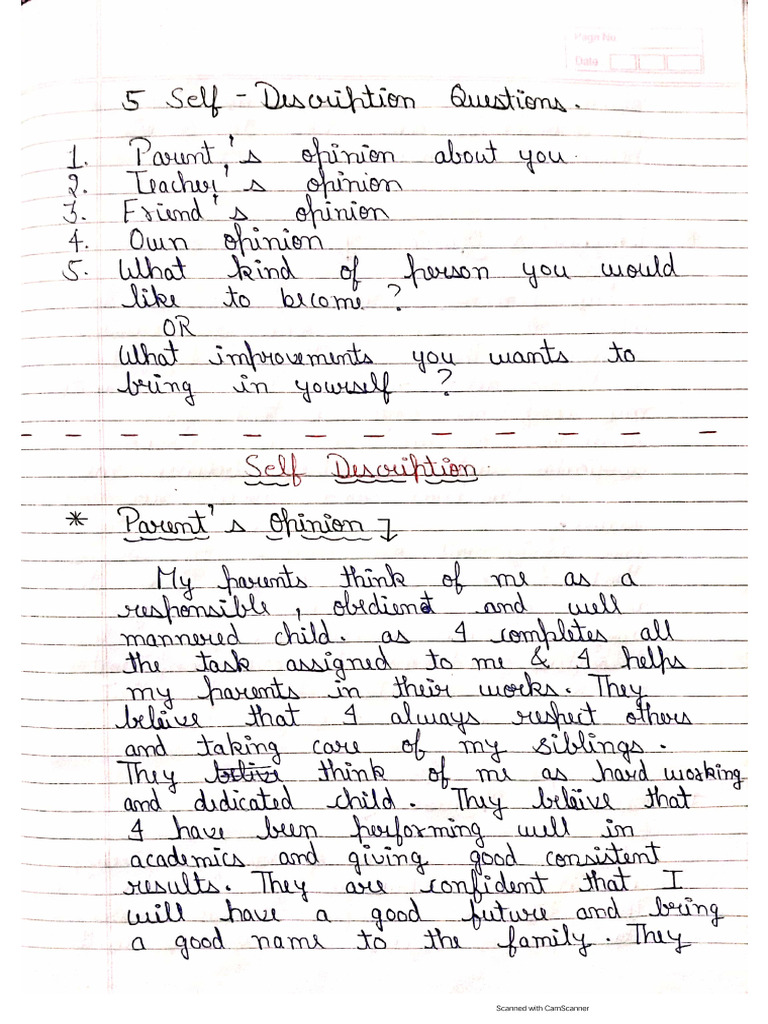 Page No
Date
5 Self - Description Questions.
1. Parent's opinion about you.
2. Teacher's opinion
3. Friend's opinion
4. Own opinion
5. What kind of person you would
like to become ?
OR
What improvements you wants to
bring in yourself ?
Self Description
* Parent's Opinion
My parents think of me as a
responsible , obedient and well
mannered child. as I completes all
the task assigned to me & I helps
my parents in their works. They
beleive that I always respect others
and taking care of my siblings .
They belive think of me as hard working
and dedicated child. They beleive that
I have been performing well in
academics and giving good consistent
results. They are confident that I
will have a good future and bring
a good name to the family. They
Scanned with CamScanner